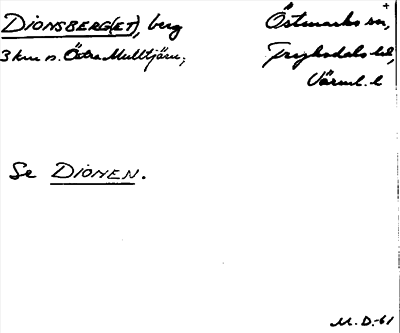 DIONSBERG(ET), berg Östmarks sn,
3 km n. Östra Mulltjärn; Fryksdals hd,
Värml. l
Se DIONEN.
M.D.-61